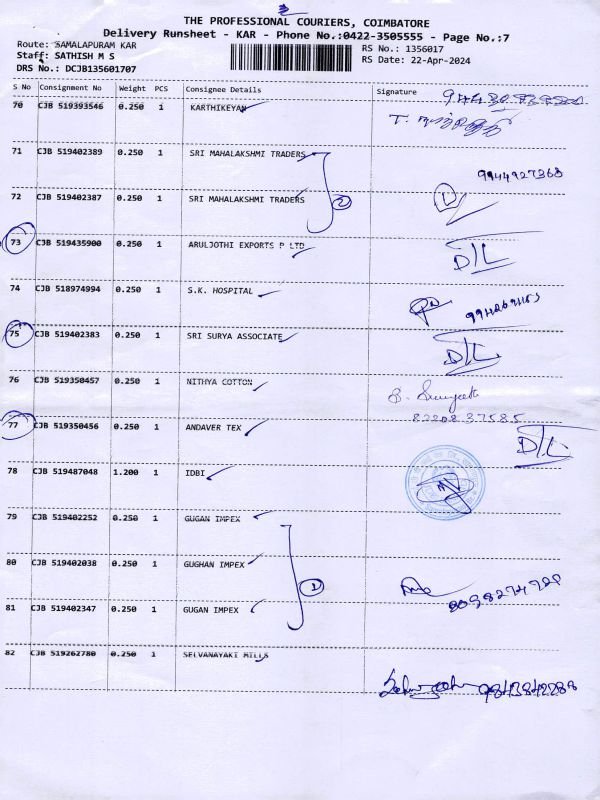 THE PROFESSIONAL COURIERS, COIMBATORE
Delivery Runsheet - KAR - Phone No.:0422-3505555 - Page No.:7
Route: SAMALAPURAM KAR
RS No.: 1356017
Staff: SATHISH M S
RS Date: 22-Apr-2024
DRS No.: DCJB135601707
S No Consignment No Weight PCS Consignee Details Signature
70 CJB 519393546 0.250 1 KARTHIKEYAN
71 CJB 519402389 0.250 1 SRI MAHALAKSHMI TRADERS
9944927368
72 CJB 519402387 0.250 1 SRI MAHALAKSHMI TRADERS 2
73 CJB 519435900 0.250 1 ARULJOTHI EXPORTS P LTD D/L
74 CJB 518974994 0.250 1 S.K. HOSPITAL
75 CJB 519402383 0.250 1 SRI SURYA ASSOCIATE D/L
76 CJB 519350457 0.250 1 NITHYA COTTON
82208 37585
77 CJB 519350456 0.250 1 ANDAVER TEX D/L
78 CJB 519487048 1.200 1 IDBI
79 CJB 519402252 0.250 1 GUGAN IMPEX
80 CJB 519402038 0.250 1 GUGHAN IMPEX
81 CJB 519402347 0.250 1 GUGAN IMPEX
82 CJB 519262780 0.250 1 SELVANAYAKI MILLS
9843842288